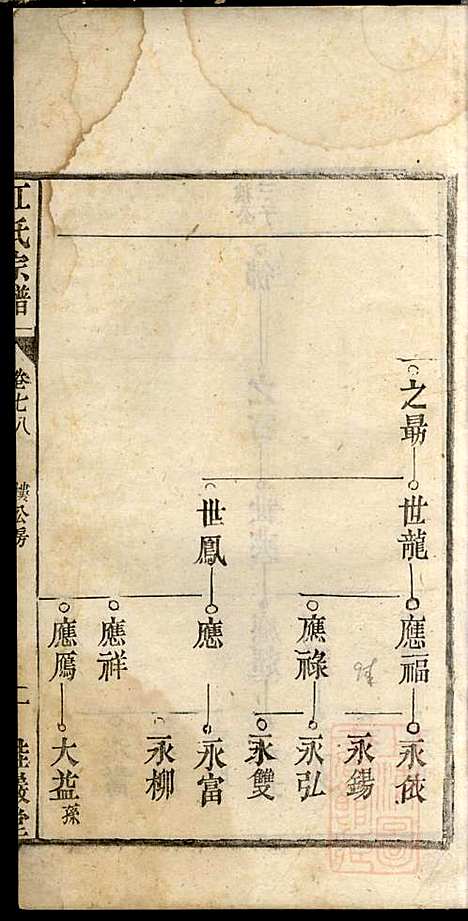 之最
世龍
世鳳
應福
應祿
應
應祥
應鴈
永依
永錫
永弘
永雙
永富
永柳
大益孫
江氏宗譜
卷七八
樓公房
二